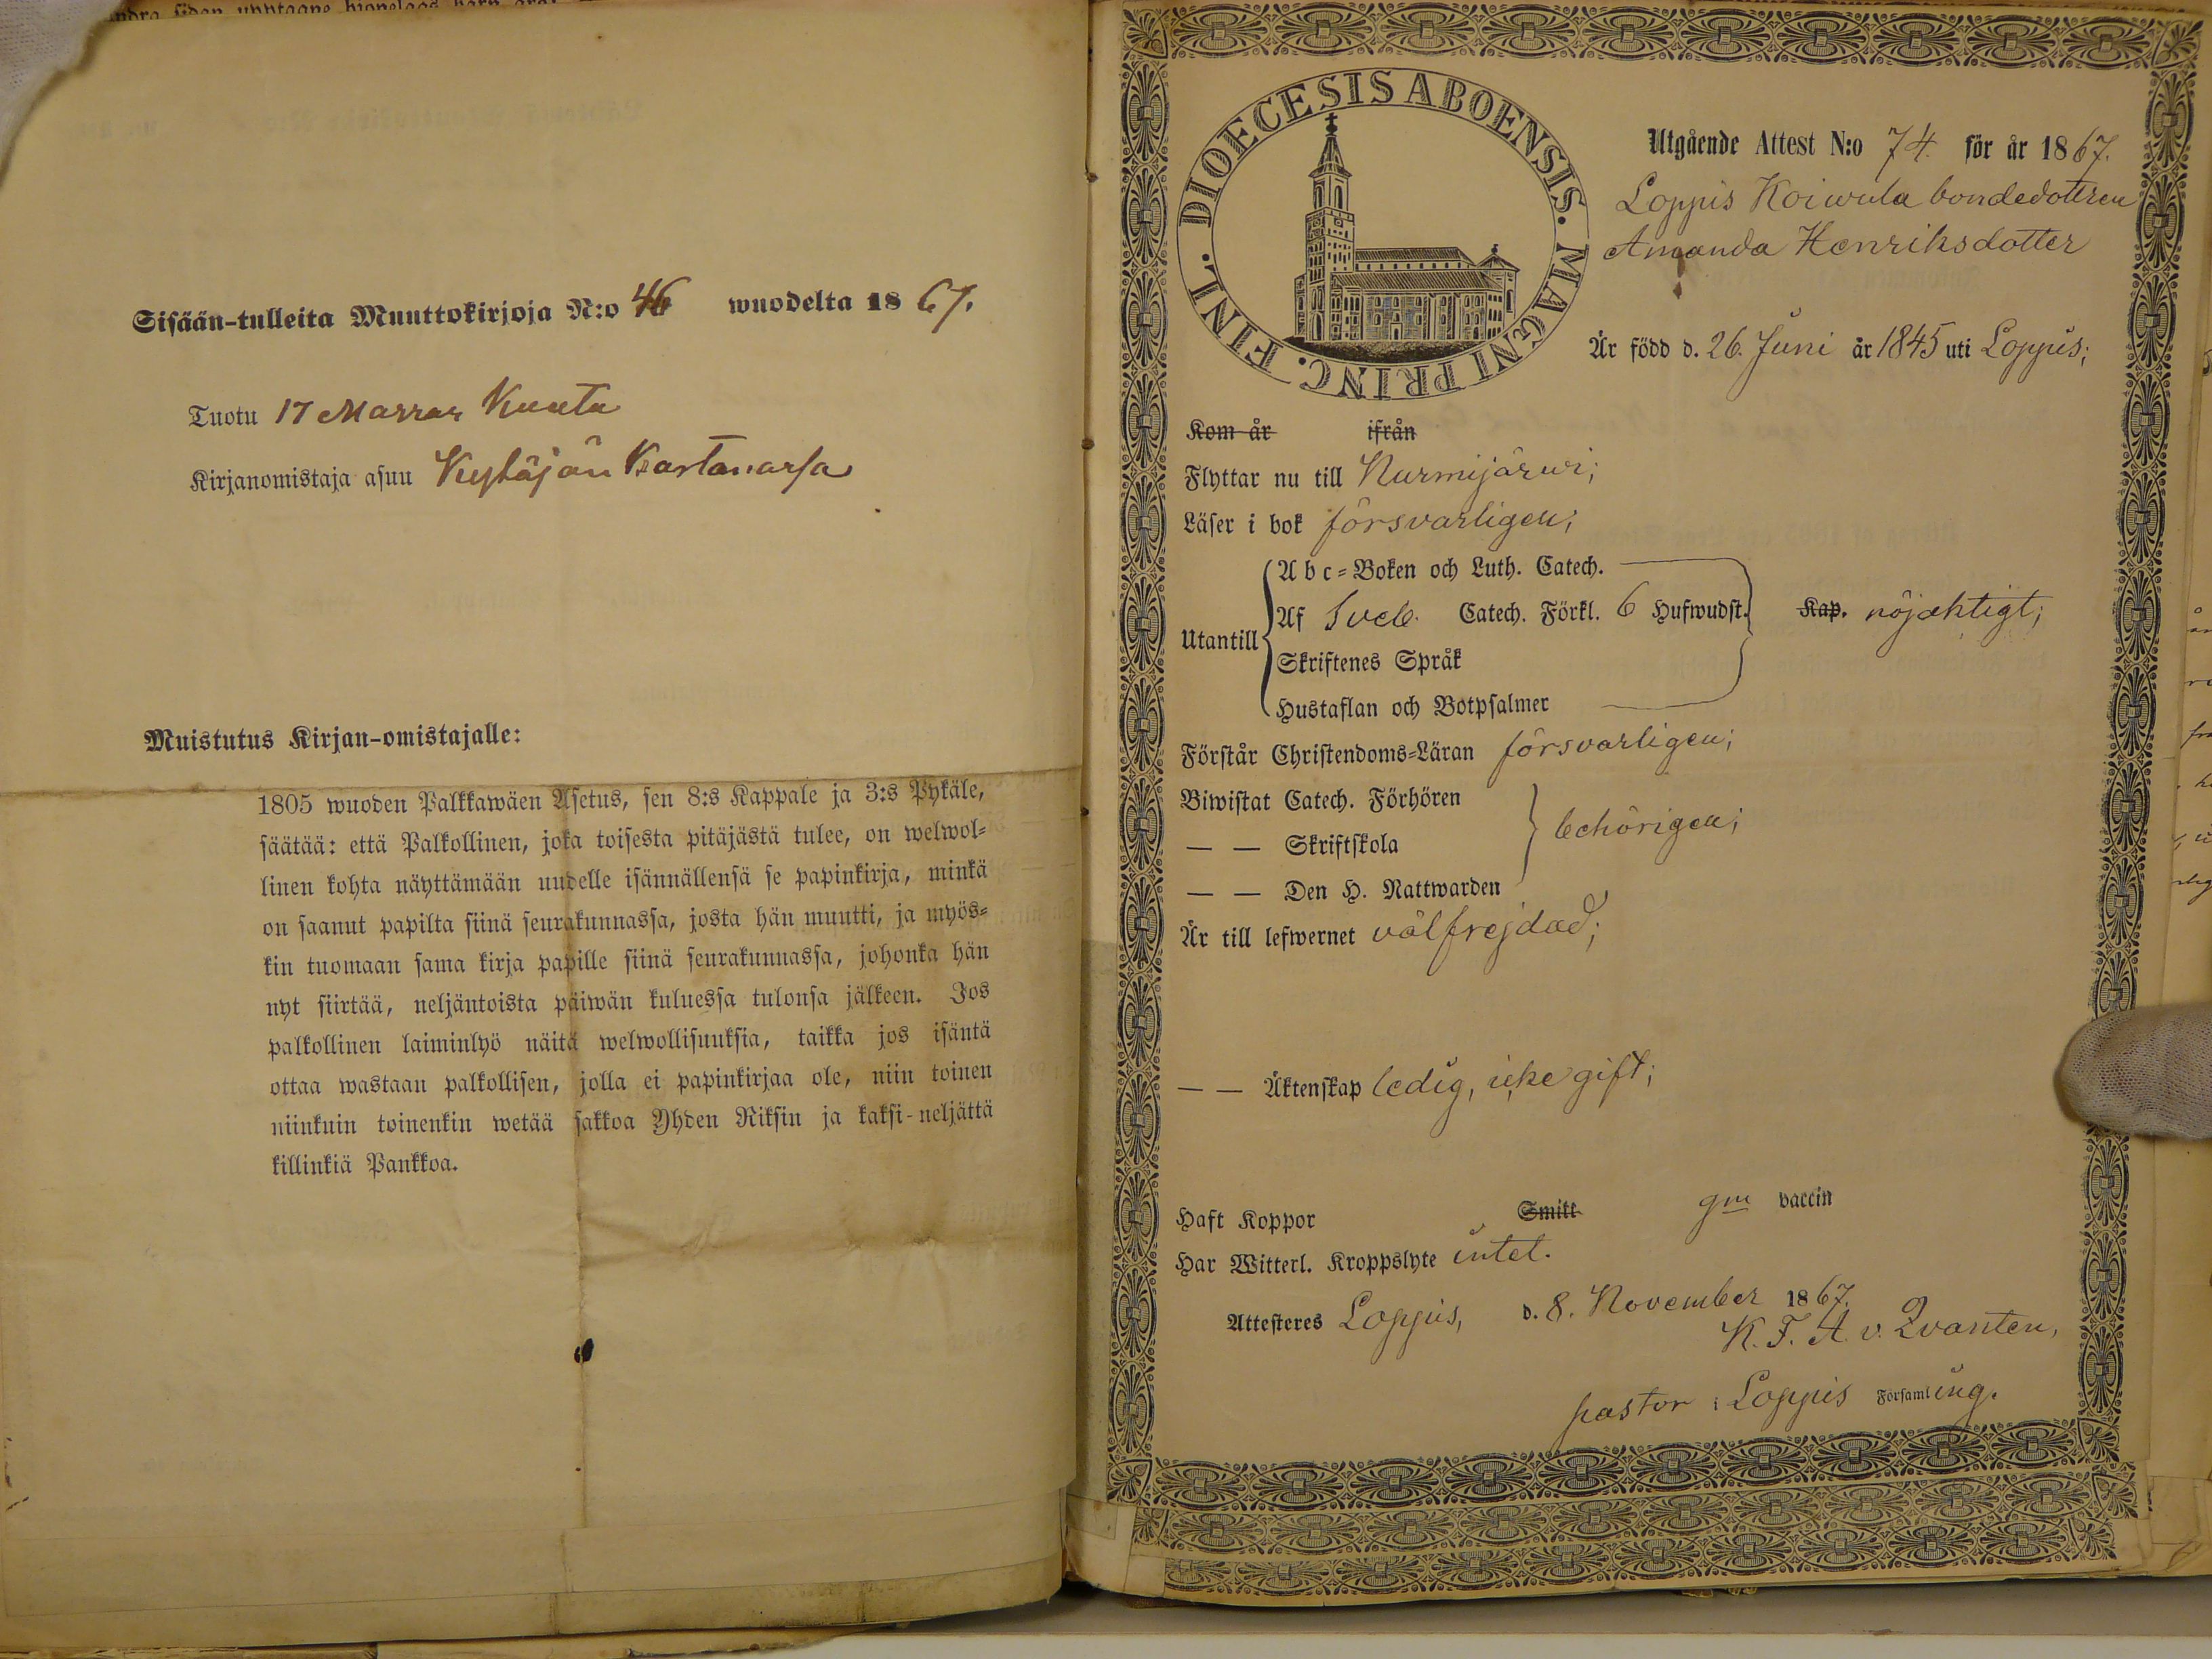 Sisään-tulleita Muuttokirjoja N:o 46 wuodelta 1867.
Tuotu 17 Marras Kuuta
Kirjanomistaja asuu Kytäjän Kartanossa
Muistutus Kirjan-omistajalle:
1805 wuoden Palkkawäen Asetus, sen 8:s Kappale ja 3:s Pykäle,
säätää: että Palkollinen, joka toisesta pitäjästä tulee, on welwol-
linen kohta näyttämään uudelle isännällensä se papinkirja, minkä
on saanut papilta siinä seurakunnassa, josta hän muutti, ja myös-
kin tuomaan sama kirja papille siinä seurakunnassa, johonka hän
nyt siirtää, neljäntoista päiwän kuluessa tulonsa jälkeen. Jos
palkollinen laiminlyö näitä welwollisuuksia, taikka jos isäntä
ottaa wastaan palkollisen, jolla ei papinkirjaa ole, niin toinen
niinkuin toinenkin wetää sakkoa Yhden Riksin ja kaksi-neljättä
killinkiä Pankkoa.
DIOECESIS ABOENSIS. MAGNI PRINC. FINL.
Utgående Attest N:o 74. för år 1867.
Loppis Koiwula bondedottren
Amanda Henriksdotter
Är född d. 26. Juni år 1845 uti Loppis;
Kom år ifrån
Flyttar nu till Nurmijärwi;
Läser i bok försvarligen;
Utantill
A b c-Boken och Luth. Catech.
Af Sveb. Catech. Förkl. 6 Hufwudst. Kap. nöjaktigt;
Skriftenes Språk
Hustaflan och Botpsalmer
Förstår Christendoms-Läran försvarligen;
Biwistat Catech. Förhören
— — Skriftskola behörigen;
— — Den H. Nattwarden
Är till lefwernet välfrejdad;
— — Äktenskap ledig, icke gift;
Haft Koppor Smitt gm vaccin
Har Witterl. Kroppslyte intet.
Attesteres Loppis, d. 8. November 1867.
K. F. A. v. Qvanten,
pastor i Loppis Församling.